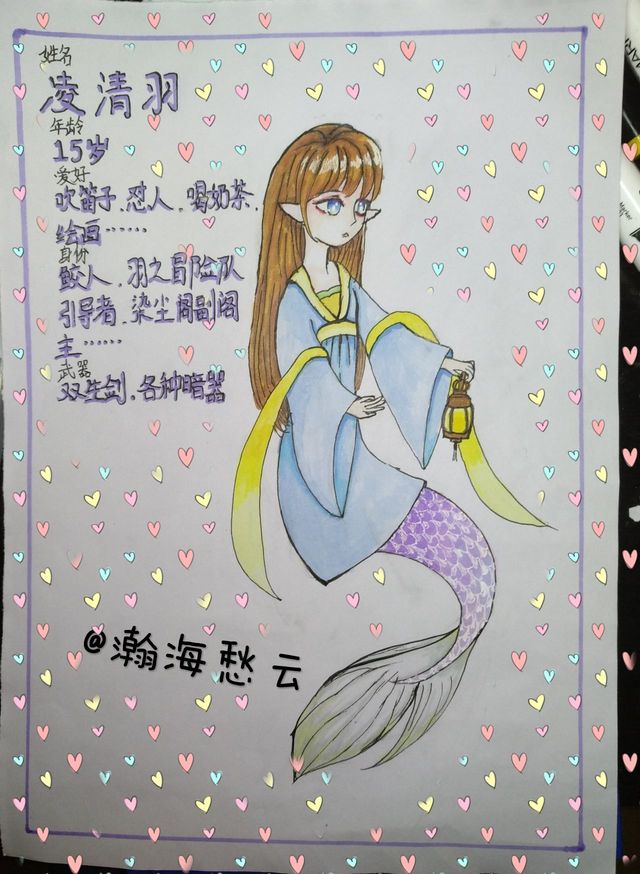 姓名
凌清羽
年龄
15岁
爱好
吹笛子、怼人、喝奶茶、
绘画……
身份
鲛人、羽之冒险队
引导者、染尘阁副阁
主……
武器
双生剑、各种暗器
@瀚海愁云